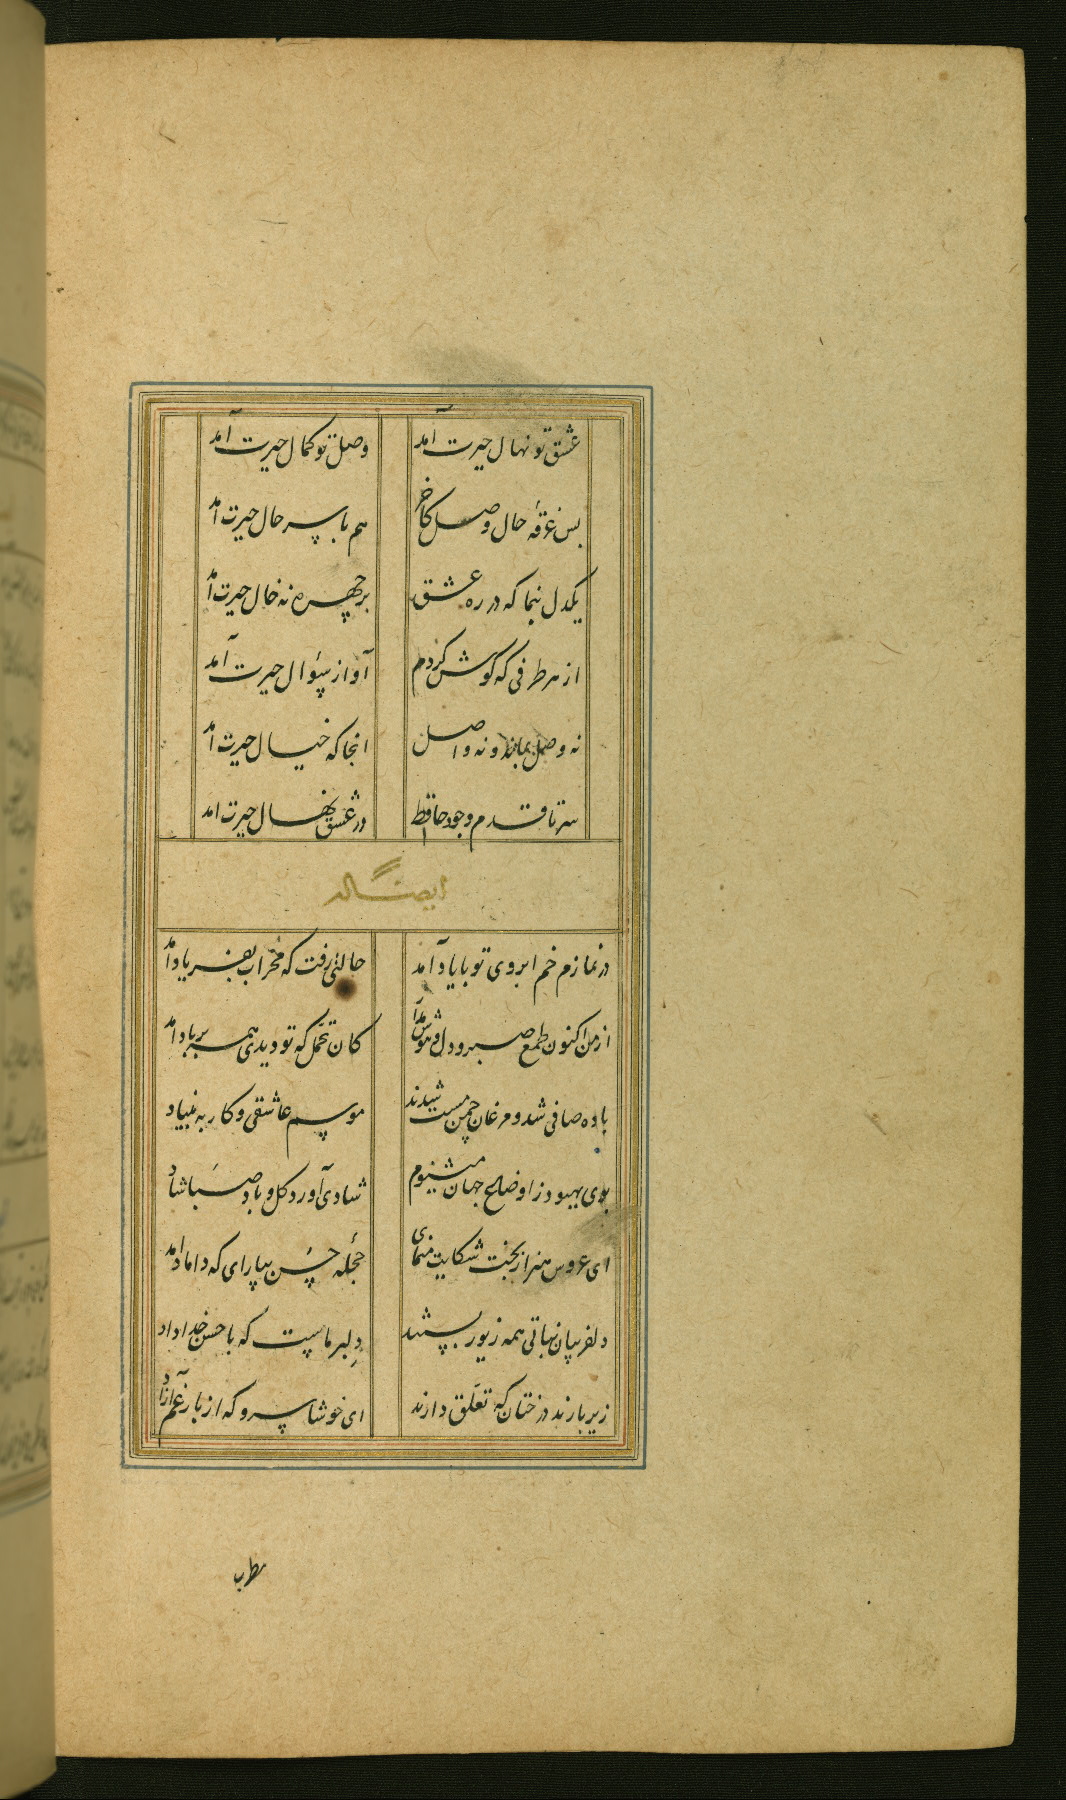 عشق تو نهال حیرت آمد وصل تو کمال حیرت آمد
بس غرقهٔ حال وصل کاخر هم با سر حال حیرت آمد
یکدل بنما که در ره عشق بر چهره نه خال حیرت آمد
از هر طرفی که گوش کردم آواز سؤال حیرت آمد
نه وصل بماند و نه واصل انجا که خیال حیرت آمد
سر تا قدم وجود حافظ در عشق نهال حیرت امد
ایضاله
در نمازم خم ابروی تو با یاد آمد حالتی رفت که محراب بفریاد آمد
از من اکنون طمع صبر و دل و هوش مدار کان تحمل که تو دیدی همه بر باد آمد
باده صافی شد و مرغان چمن مست شدند موسم عاشقی و کار به بنیاد
بوی بهبود ز اوضاع جهان میشنوم شادی آورد کل و باد صبا شاد
ای عروس هنر از بخت شکایت منمای حجلهٔ حُسن بیارای که داماد آمد
دلفریبان نباتی همه زیور بستند دلبر ماست که با حسن خداداد
زیر بارند درختان که تعلّق دارند ای خوشا سرو که از بار غم آزاد
مطرب